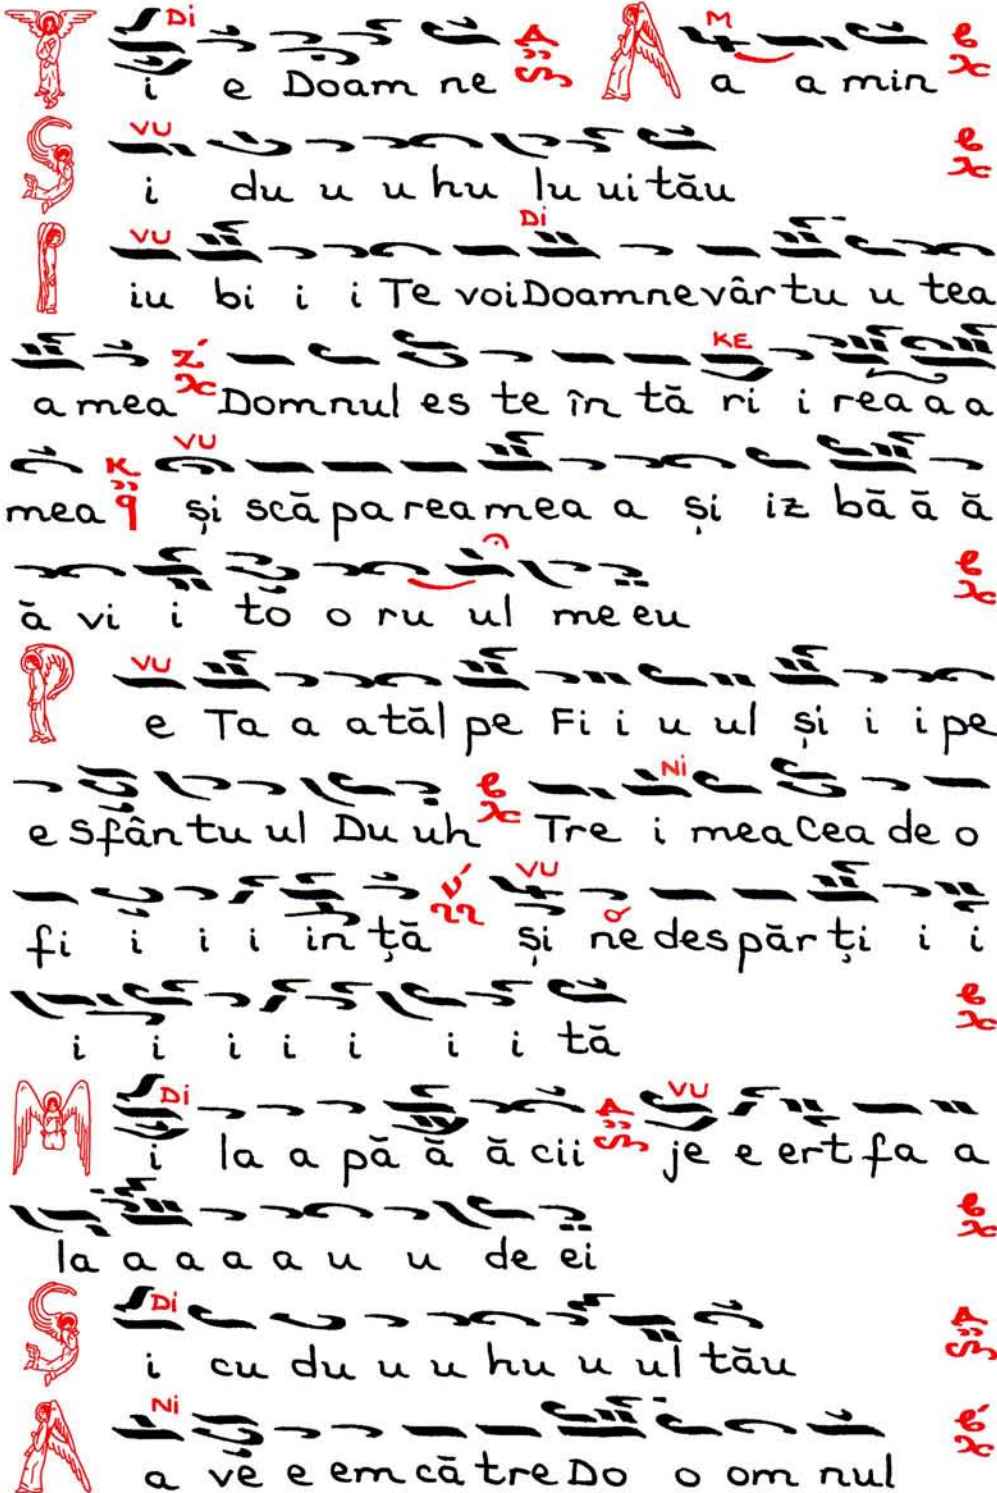 Di M
Ti e Doam ne A a a min
VU
Si du u u hu lu ui tău
VU Di
I iu bi i i Te voi Doamne vâr tu u tea
KE
a mea Domnul es te în tă ri i rea a a
VU
mea și scă pa rea mea a și iz bă ă ă
ă vi i to o ru ul me eu
VU
P e Ta a a tăl pe Fi i u ul și i i pe
Ni
e Sfân tu ul Du uh Tre i mea Cea de o
VU
fi i i i in ță și ne des păr ți i i
i i i i i i i tă
Di VU
M i la a pă ă ă cii je e ert fa a
la a a a a u u de ei
Di
S i cu du u u hu u ul tău
Ni
A a ve e em că tre Do o om nul